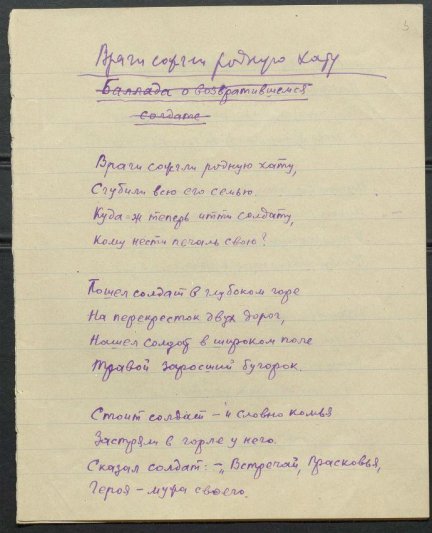 5
Враги сожгли родную хату
Баллада о возвратившемся
солдате
Враги сожгли родную хату,
Сгубили всю его семью.
Куда-ж теперь итти солдату,
Кому нести печаль свою?
Пошел солдат в глубоком горе
На перекресток двух дорог,
Нашел солдат в широком поле
Травой заросший бугорок.
Стоит солдат – и словно комья
Застряли в горле у него.
Сказал солдат: – „Встречай, Прасковья,
Героя – мужа своего.